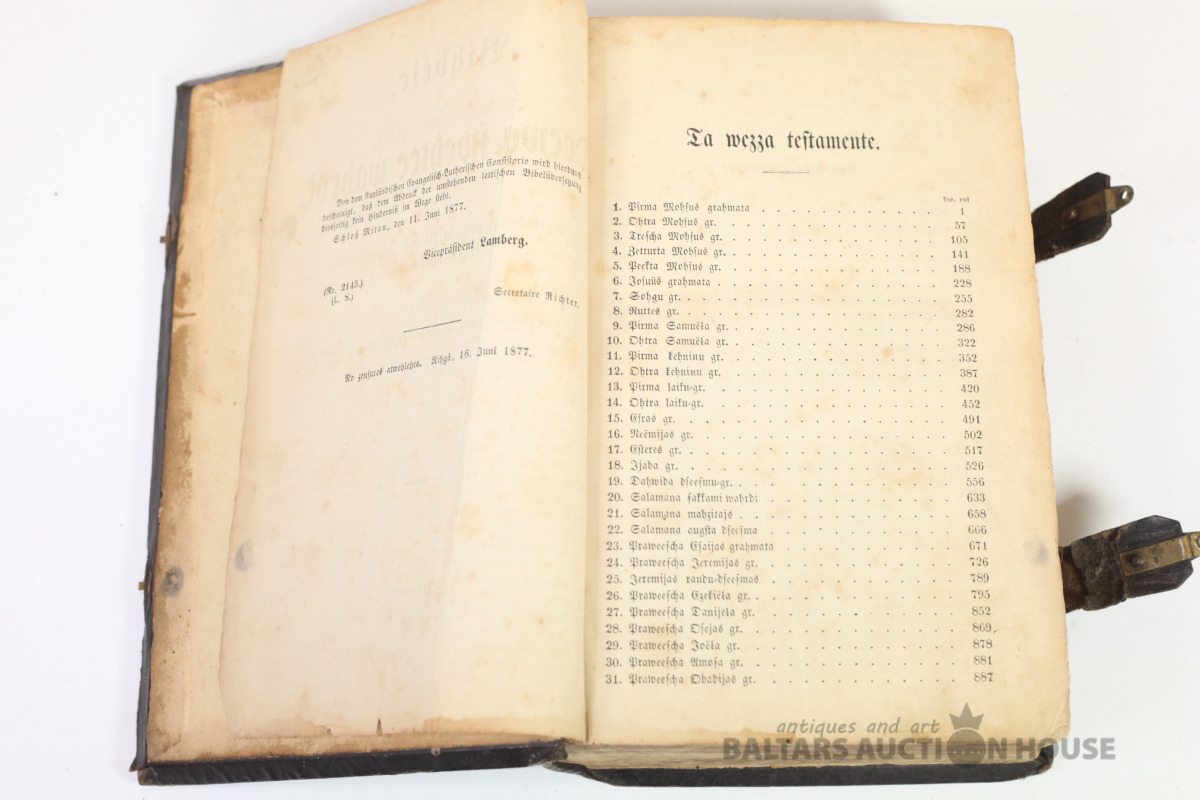 Von dem Kurländischen Evangelisch-Lutherischen Consistorio wird hierdurch
bescheinigt, daß dem Abdruck der umstehenden lettischen Bibelübersetzung
diesseitig kein Hinderniß im Wege steht.
Schloß Mitau, den 11. Juni 1877.
Vicepräsident Lamberg.
(Nr. 2145.)
(L. S.)
Secretaire Richter.
No zensures atwehlehts. Rihgâ, 16. Juni 1877.
Ta wezza testamente.
1. Pirma Mohsus grahmata . . . 1
2. Ohtra Mohsus gr. . . . 57
3. Trescha Mohsus gr. . . . 105
4. Zetturta Mohsus gr. . . . 141
5. Peekta Mohsus gr. . . . 188
6. Josuüs grahmata . . . 228
7. Sohgu gr. . . . 255
8. Ruttes gr. . . . 282
9. Pirma Samuëla gr. . . . 286
10. Ohtra Samuëla gr. . . . 322
11. Pirma kehninu gr. . . . 352
12. Ohtra kehninu gr. . . . 387
13. Pirma laiku-gr. . . . 420
14. Ohtra laiku-gr. . . . 452
15. Esras gr. . . . 491
16. Neëmijas gr. . . . 502
17. Esteres gr. . . . 517
18. Ijaba gr. . . . 526
19. Dahwida dseesmu-gr. . . . 556
20. Salamana sakkami wahrdi . . . 633
21. Salamana mahzitajs . . . 658
22. Salamana augsta dseesma . . . 666
23. Praweescha Esaijas grahmata . . . 671
24. Praweescha Jeremijas gr. . . . 726
25. Jeremijas raudu-dseesmas . . . 789
26. Praweescha Ezekiëla gr. . . . 795
27. Praweescha Danijela gr. . . . 852
28. Praweescha Osejas gr. . . . 869
29. Praweescha Joëla gr. . . . 878
30. Praweescha Amosa gr. . . . 881
31. Praweescha Obadijas gr. . . . 887
antiques and art
BALTARS AUCTION HOUSE